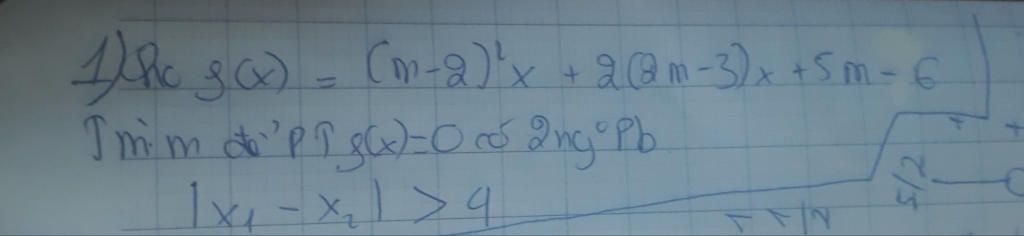 1) Cho g(x) = (m-2)²x + 2(2m-3)x + 5m - 6
Tìm m để PT g(x)=0 có 2 ngº Pb
|x₁ - x₂| > 4
5/2